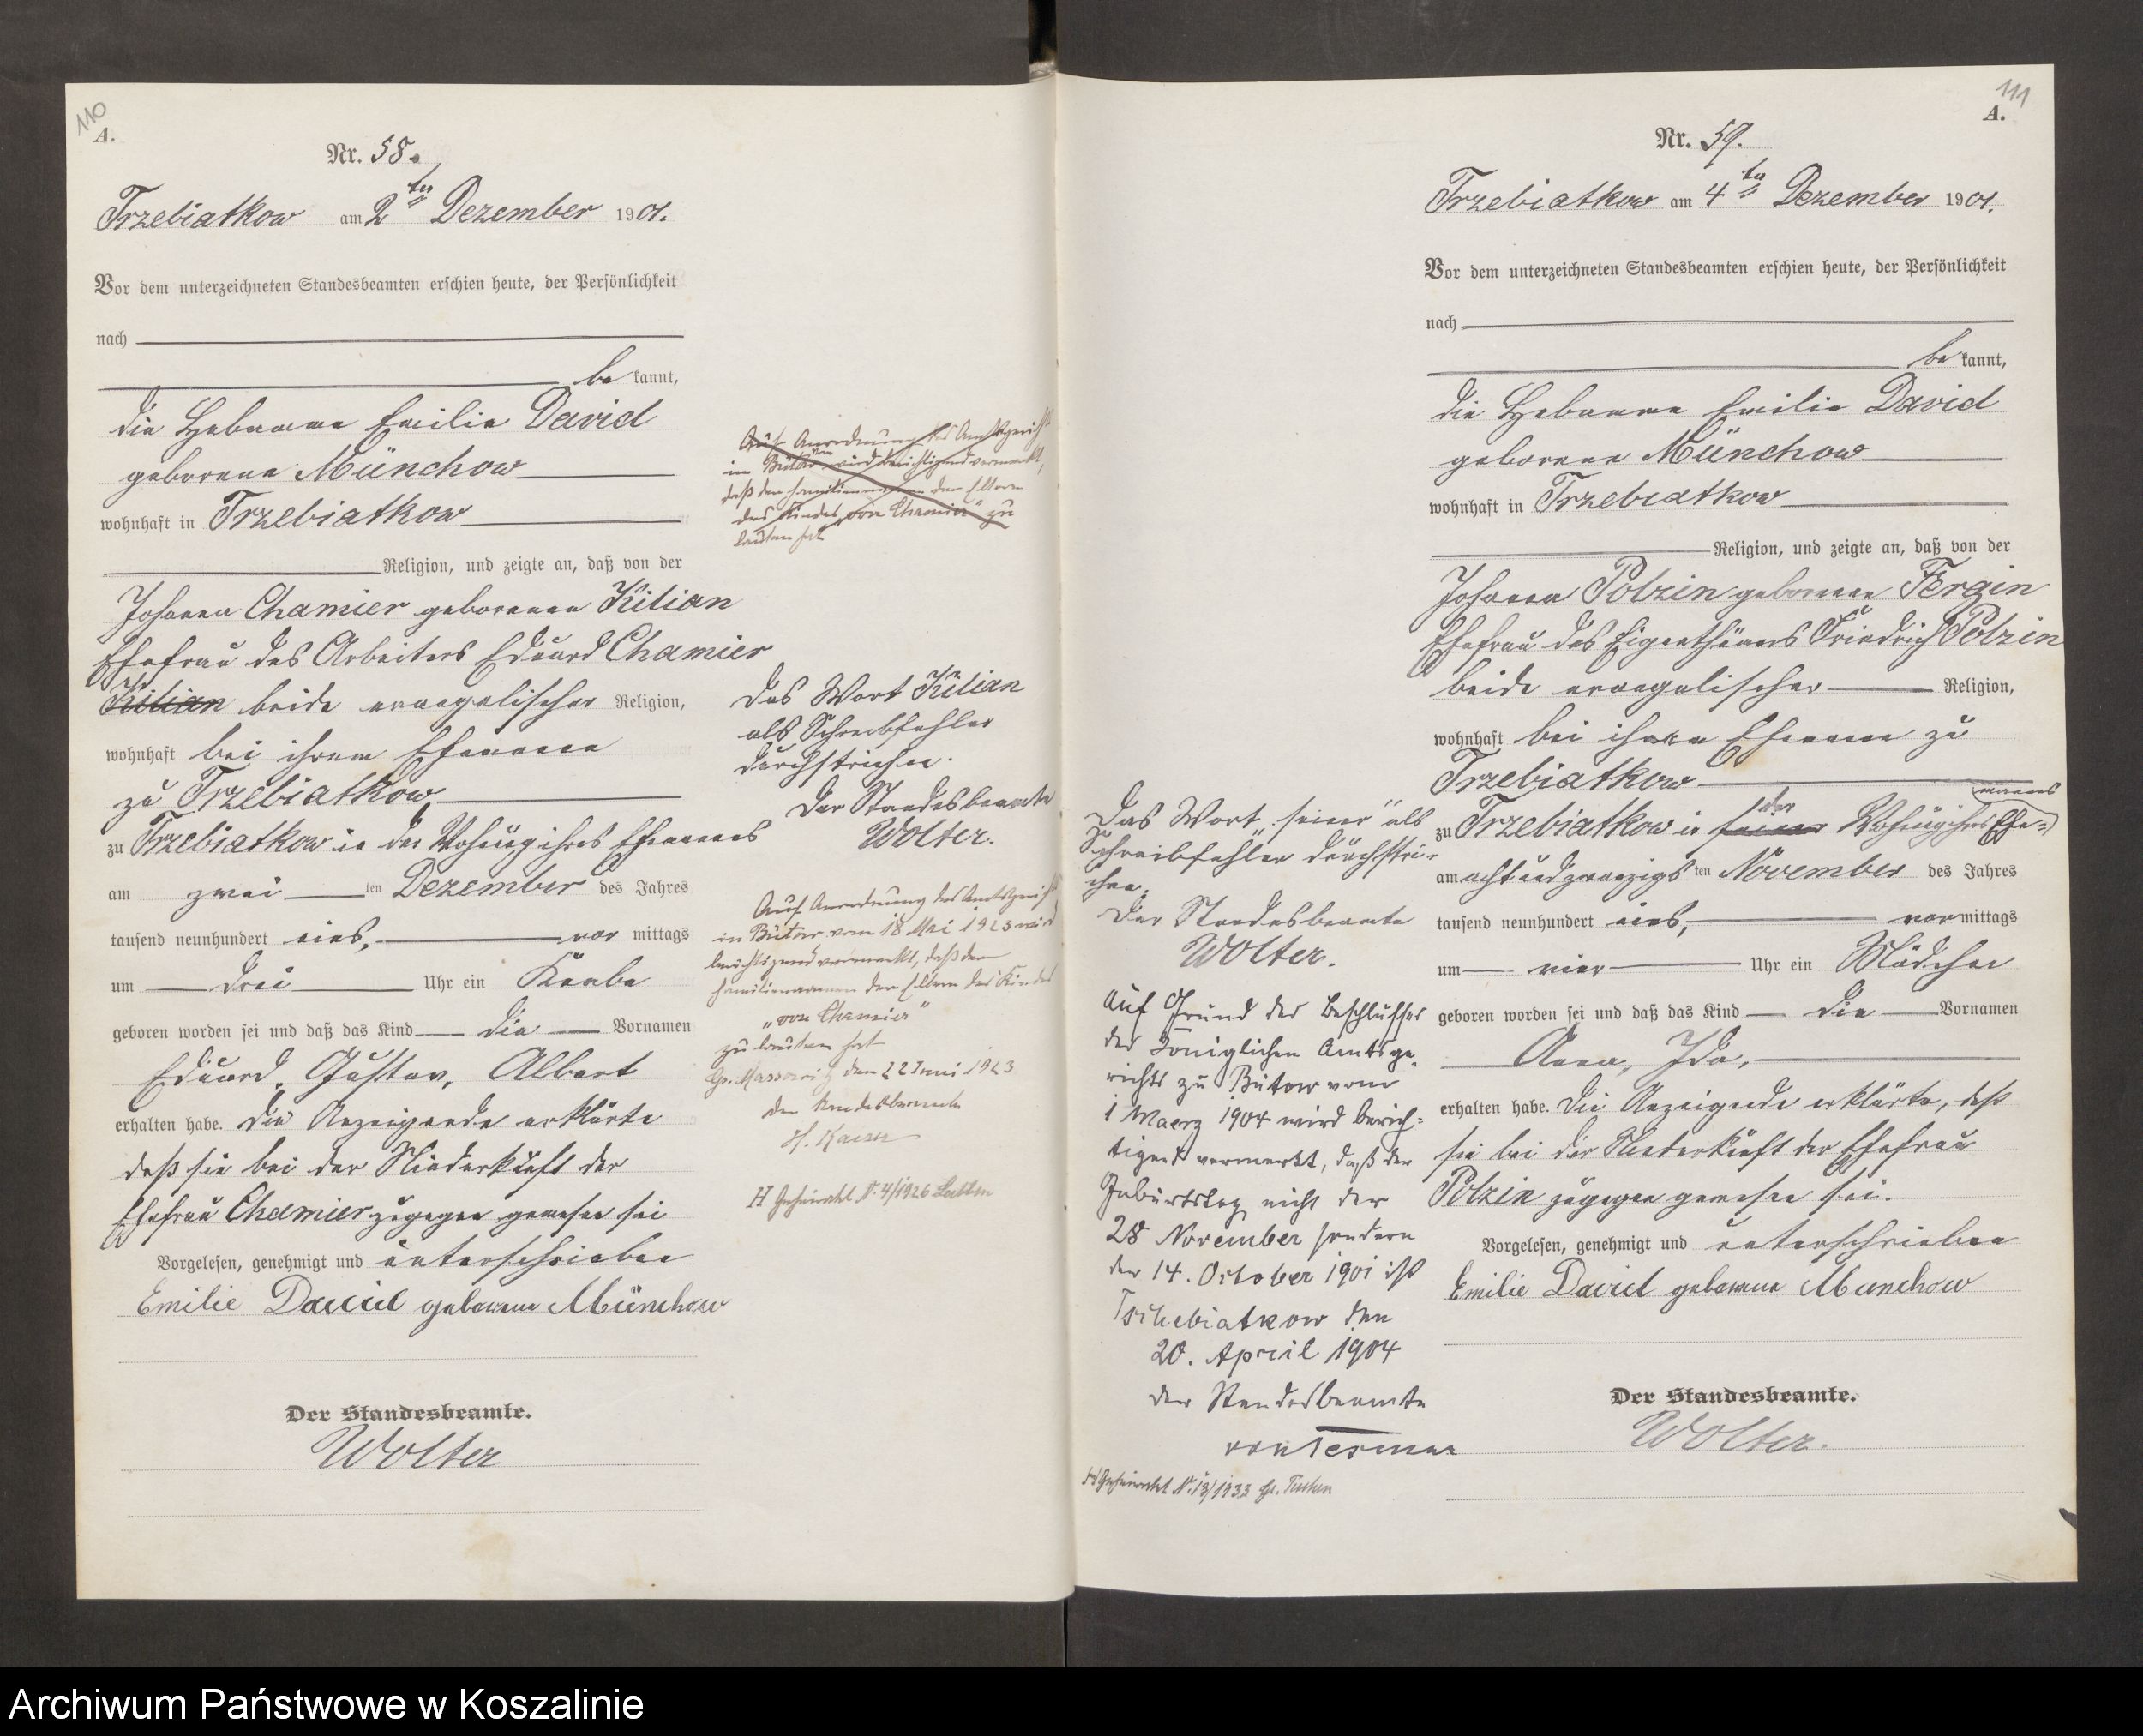 110
A.
Nr. 58.
Trzebiatkow am 2ten Dezember 1901.
Vor dem unterzeichneten Standesbeamten erschien heute, der Persönlichkeit
nach
be kannt,
die Hebamme Emilie David
geborene Münchow
wohnhaft in Trzebiatkow
Religion, und zeigte an, daß von der
Johanna Chamier geborenen Kilian
Ehefrau des Arbeiters Eduard Chamier
Kilian beide evangelischer Religion,
wohnhaft bei ihrem Ehemann
zu Trzebiatkow
zu Trzebiatkow in der Wohnung ihres Ehemannes
am zwei ten Dezember des Jahres
tausend neunhundert eins, vor mittags
um drei Uhr ein Knabe
geboren worden sei und daß das Kind die Vornamen
Eduard, Gustav, Albert
erhalten habe. Die Anzeigende erklärte
daß sie bei der Niederkunft der
Ehefrau Chamier zugegen gewesen sei
Vorgelesen, genehmigt und unterschrieben
Emilie David geborene Münchow
Der Standesbeamte.
Wolter
Auf Anordnung des Amtsgerichts
in Bütow wird berichtigend vermerkt,
daß der Familiennamen der Eltern
des Kindes „von Chamier" zu
lauten hat
Das Wort Kilian
als Schreibfehler
durchstrichen.
Der Standesbeamte
Wolter.
Auf Anordnung des Amtsgerichts
in Bütow vom 18 Mai 1923 wird
berichtigend vermerkt, daß der
Familiennamen der Eltern des Kindes
„von Chamier"
zu lauten hat
Gr. Massowitz den 22 Juni 1923
Der Standesbeamte
H. Kaiser
H Geheiratet Nr. 4/1926
111
A.
Nr. 59.
Trzebiatkow am 4ten Dezember 1901.
Vor dem unterzeichneten Standesbeamten erschien heute, der Persönlichkeit
nach
be kannt,
die Hebamme Emilie David
geborene Münchow
wohnhaft in Trzebiatkow
Religion, und zeigte an, daß von der
Johanna Polzin geborenen Fergin
Ehefrau des Eigenthümers Friedrich Polzin
beide evangelischer Religion,
wohnhaft bei ihrem Ehemann zu
Trzebiatkow
zu Trzebiatkow in seiner der Wohnung ihres Ehe=mannes
am achtundzwanzigs ten November des Jahres
tausend neunhundert eins, vor mittags
um vier Uhr ein Mädchen
geboren worden sei und daß das Kind die Vornamen
Anna, Ida,
erhalten habe. Die Anzeigende erklärte, daß
sie bei der Niederkunft der Ehefrau
Polzin zugegen gewesen sei.
Vorgelesen, genehmigt und unterschrieben
Emilie David geborene Munchow
Der Standesbeamte.
Wolter.
Das Wort „seiner" als
Schreibfehler durchstri-
chen.
Der Standesbeamte
Wolter.
Auf Grund des Beschlusses
des Königlichen Amtsge-
richts zu Bütow vom
1 Maerz 1904 wird berich=
tigend vermerkt, daß der
Geburtstag nicht der
28 November sondern
der 14. October 1901 ist
Tschebiatkow den
20. April 1904
Der Standesbeamte
H Geheiratet Nr. 13/1933 Gr. Tuchen
Archiwum Państwowe w Koszalinie